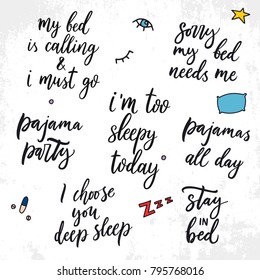 my bed
is calling
&
i must go
sorry
my bed
needs me
i'm too
sleepy
today
pajama
party
pajamas
all day
I choose
you
deep sleep
zzz
stay
in
bed
shutterstock.com · 795768016